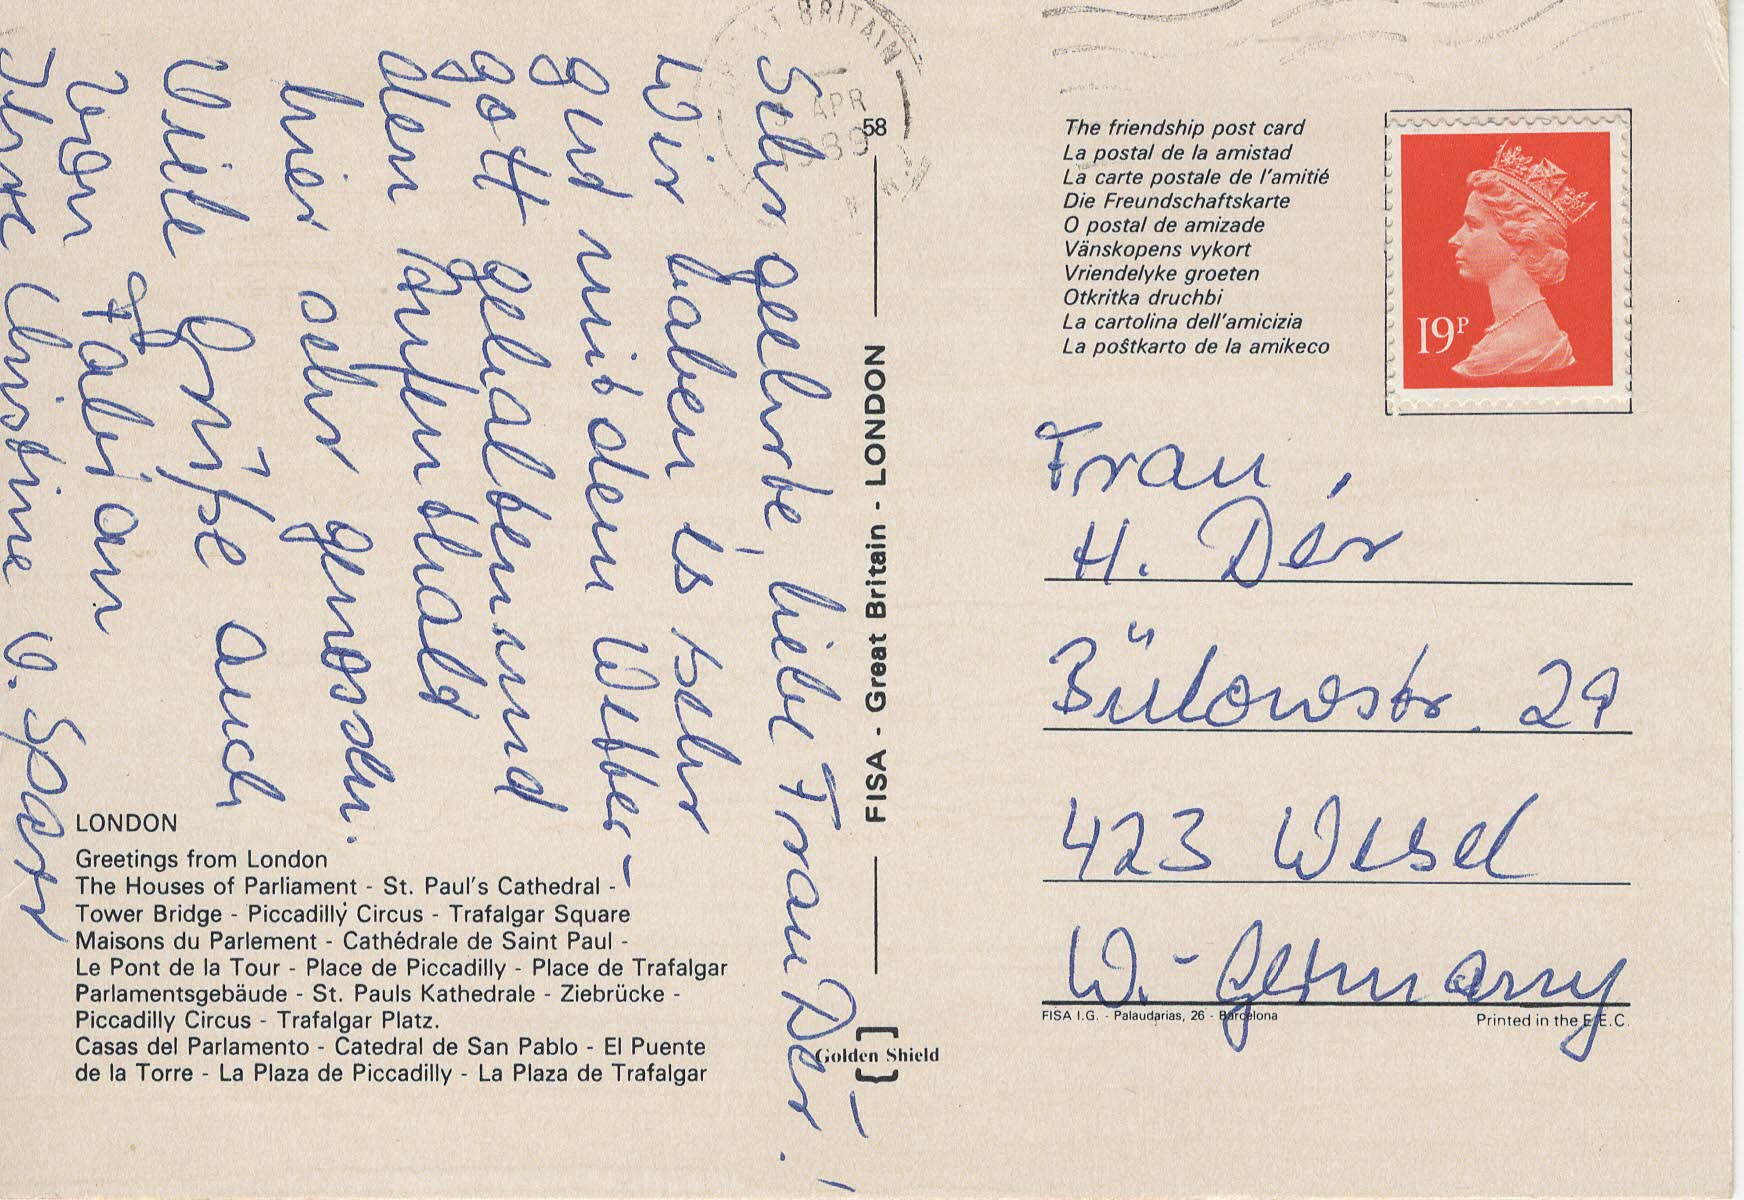 Sehr geehrte, liebe Frau Dér!
Wir haben es sehr
gut mit dem Wetter-
gott gehalten und
den
hier sehr genossen.
Viele Grüße auch
von Fabian
Ihre Christine v.
LONDON
Greetings from London
The Houses of Parliament - St. Paul's Cathedral -
Tower Bridge - Piccadilly Circus - Trafalgar Square
Maisons du Parlement - Cathédrale de Saint Paul -
Le Pont de la Tour - Place de Piccadilly - Place de Trafalgar
Parlamentsgebäude - St. Pauls Kathedrale - Ziebrücke -
Piccadilly Circus - Trafalgar Platz.
Casas del Parlamento - Catedral de San Pablo - El Puente
de la Torre - La Plaza de Piccadilly - La Plaza de Trafalgar
BRITAIN
APR
58
FISA - Great Britain - LONDON
Golden Shield
The friendship post card
La postal de la amistad
La carte postale de l'amitié
Die Freundschaftskarte
O postal de amizade
Vänskopens vykort
Vriendelyke groeten
Otkritka druchbi
La cartolina dell'amicizia
La poŝtkarto de la amikeco
19P
Frau
H. Dér
Bülowstr. 29
423 Wesel
W.-Germany
FISA I.G. - Palaudarias, 26 - Barcelona
Printed in the E.E.C.